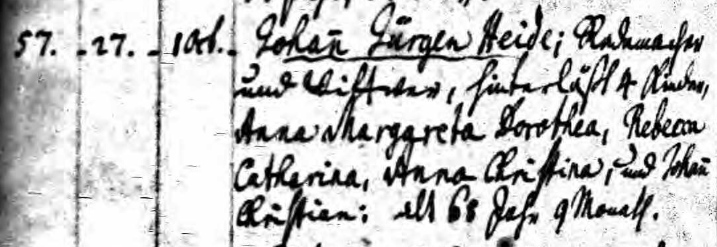 57. - 27. - 1 Oct. - Johañ Jürgen Heide; Rademacher
und Wittwer, hinterläßt 4 Kinder,
Anna Margareta Dorothea, Rebecca
Catharina, Anna Christina, und Johañ
Christian: alt 68 Jahr 9 Monath.